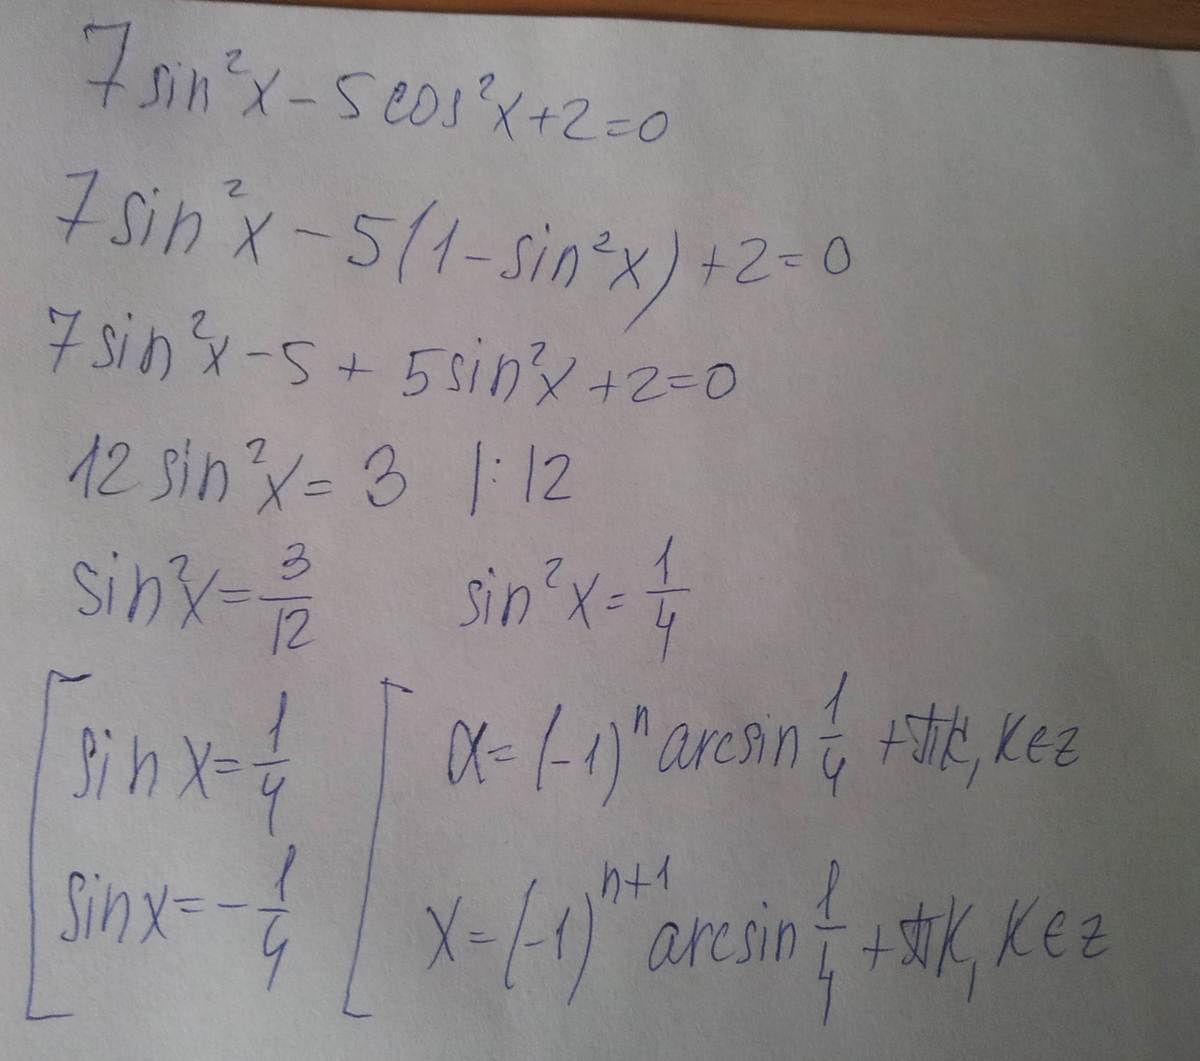 7sin²x - 5cos²x + 2 = 0
7sin²x - 5(1 - sin²x) + 2 = 0
7sin²x - 5 + 5sin²x + 2 = 0
12sin²x = 3 |:12
sin²x = 3/12 sin²x = 1/4
[ sin x = 1/4 [ x = (-1)ⁿ arcsin 1/4 + πk, k∈z
sin x = -1/4 x = (-1)ⁿ⁺¹ arcsin 1/4 + πk, k∈z